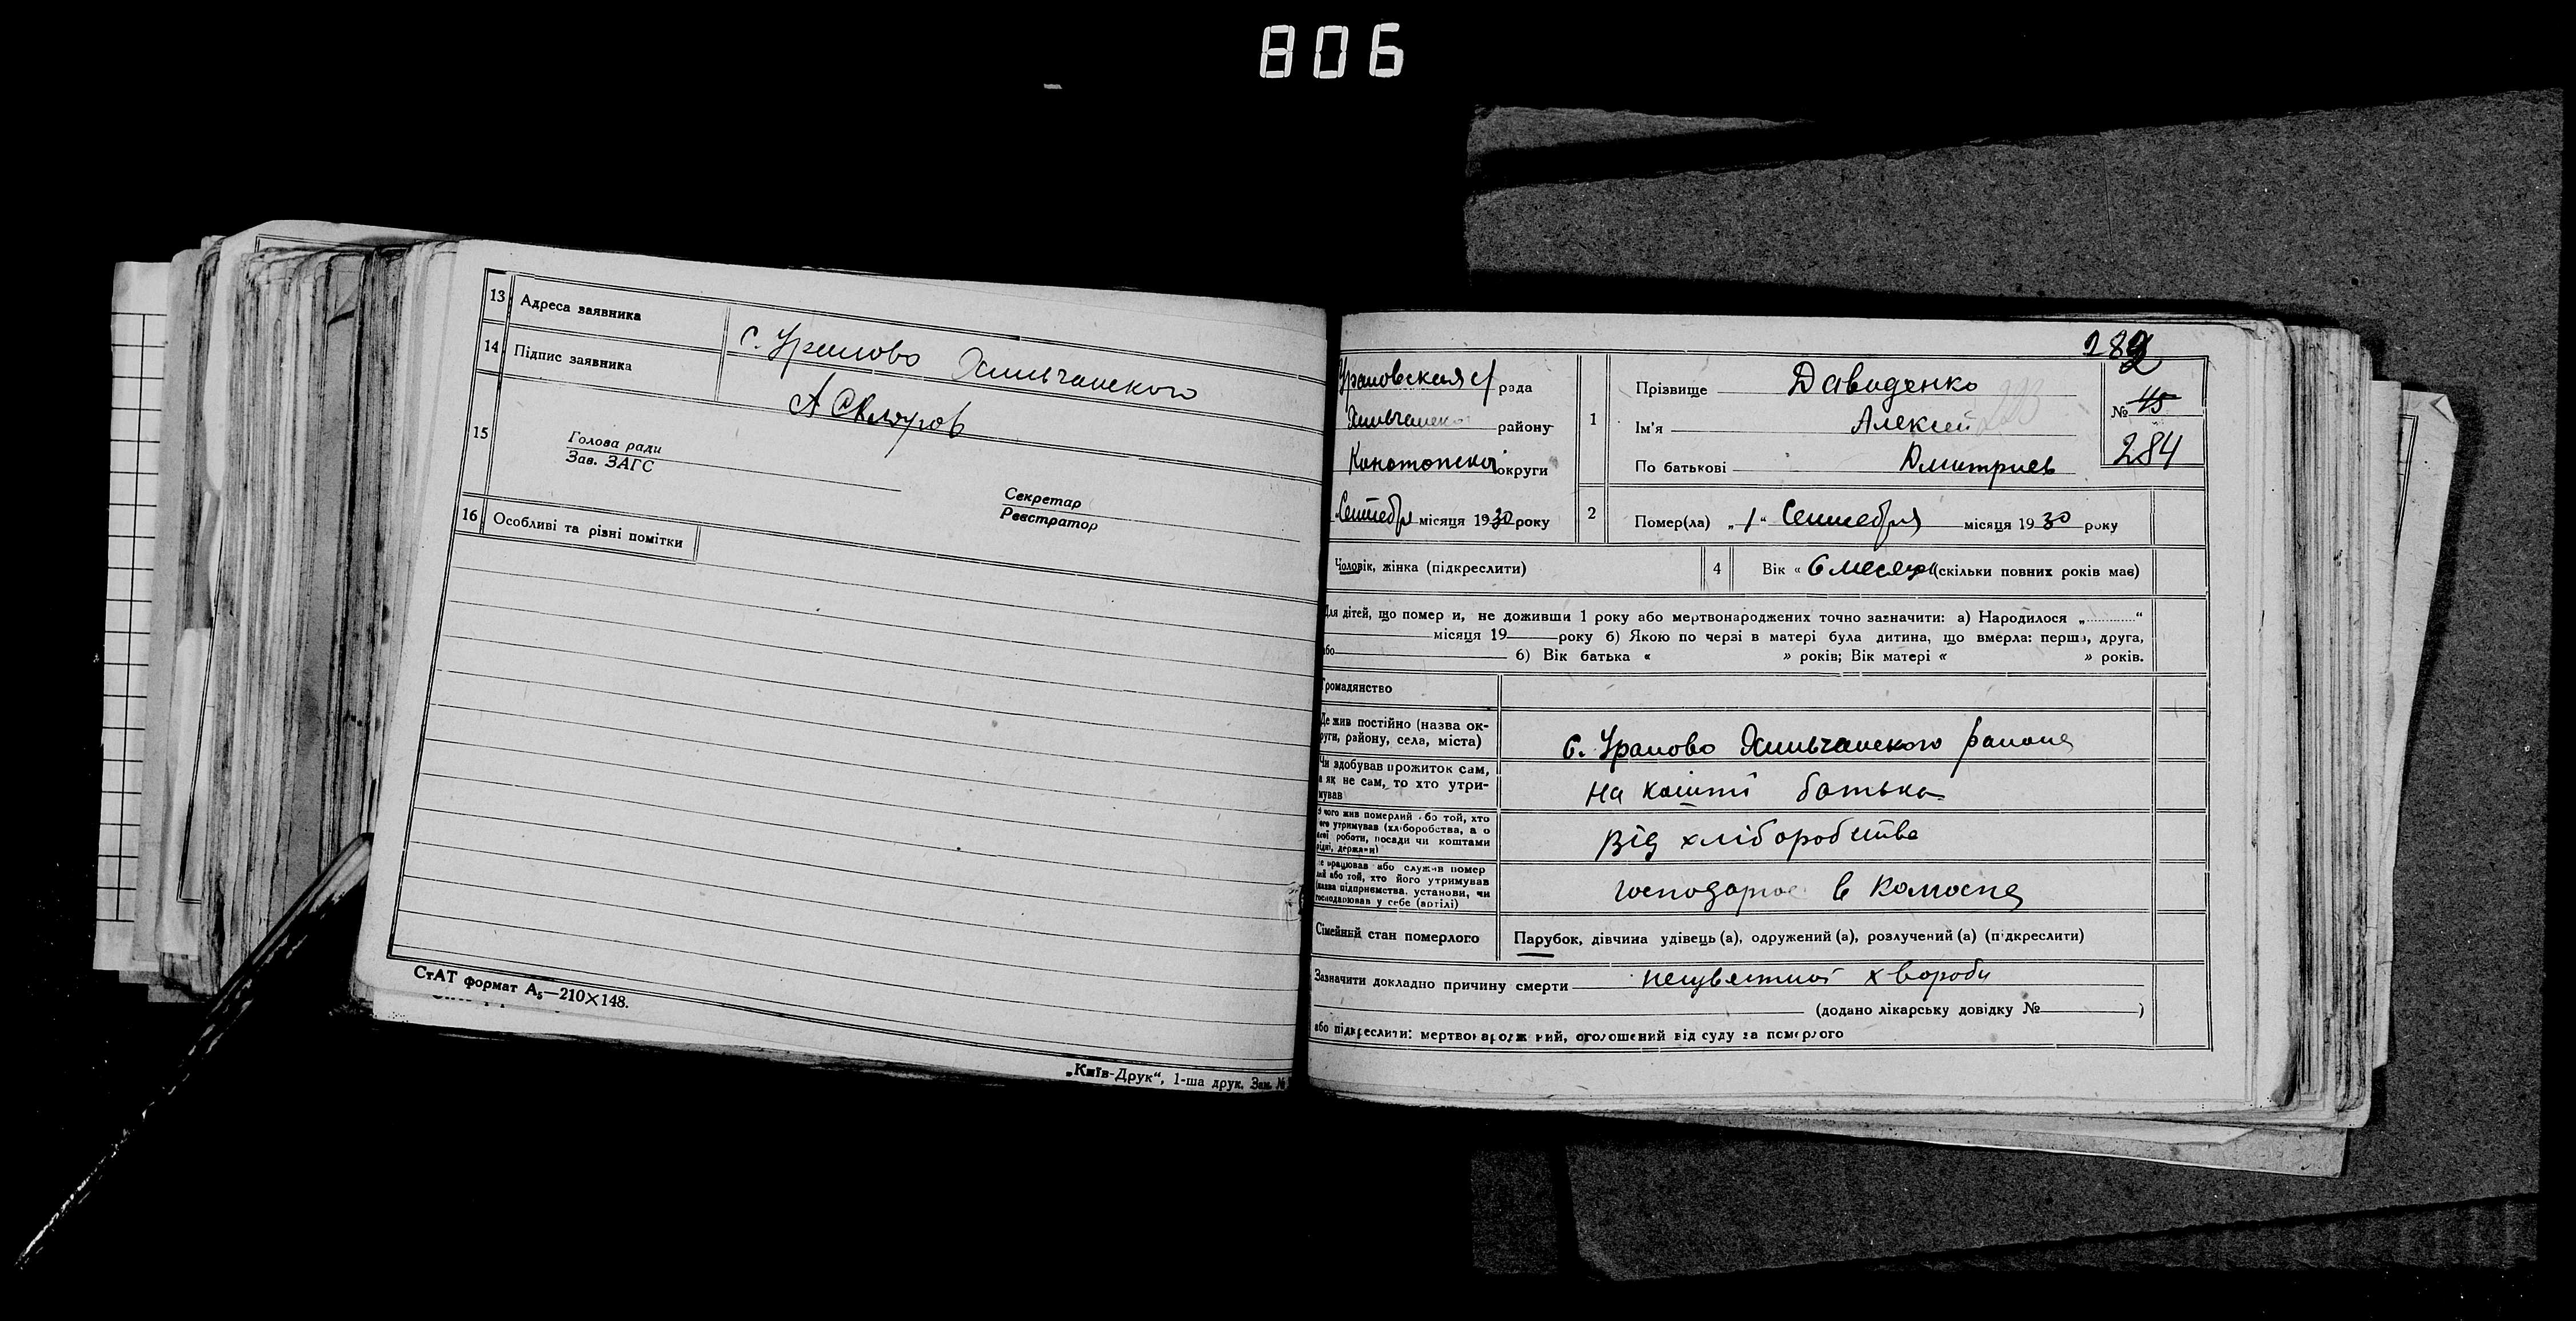 806
13 Адреса заявника
с. Уралово Хильчанского
14 Підпис заявника
А Скляров
15
Голова ради
Зав. ЗАГС
Секретар
Реєстратор
16 Особливі та різні помітки
СтАТ формат А₅—210×148.
„Київ-Друк“, 1-ша друк. Зам. №
282
рада
району
округи
Сентебря місяця 1930 року
1 Прізвище Давиденко
Ім'я Алексей
По батькові Дмитриев
№ 45
284
2 Помер(ла) „1“ Сентебря місяця 1930 року
Чоловік, жінка (підкреслити)
4 Вік « 6 месяц (скільки повних років має)
Для дітей, що помер и, не доживши 1 року або мертвонароджених точно зазначити: а) Народилося „..........“
місяця 19 року б) Якою по черзі в матері була дитина, що вмерла: перша, друга,
або 6) Вік батька « » років; Вік матері « » років.
Громадянство
Де жив постійно (назва ок-
руги, району, села, міста)
с. Урапово Хильчанского района
Чи здобував прожиток сам,
а як не сам, то хто утри-
мував
на кошті батька
З чого жив померлий або той, хто
його утримував (хліборобства, а о
якої роботи, посади чи коштами
рідні, держави)
від хліборобства
Де працював або служив помер
лий або той, хто його утримував
(назва підприємства, установи, чи
господарював у себе (артілі)
господарює в
Сімейный стан померлого
Парубок, дівчина удівець (а), одружений (а), розлучений (а) (підкреслити)
Зазначити докладно причину смерти хвороби
(додано лікарську довідку № )
або підкреслити: мертвонароджений, оголошений від суду за померлого